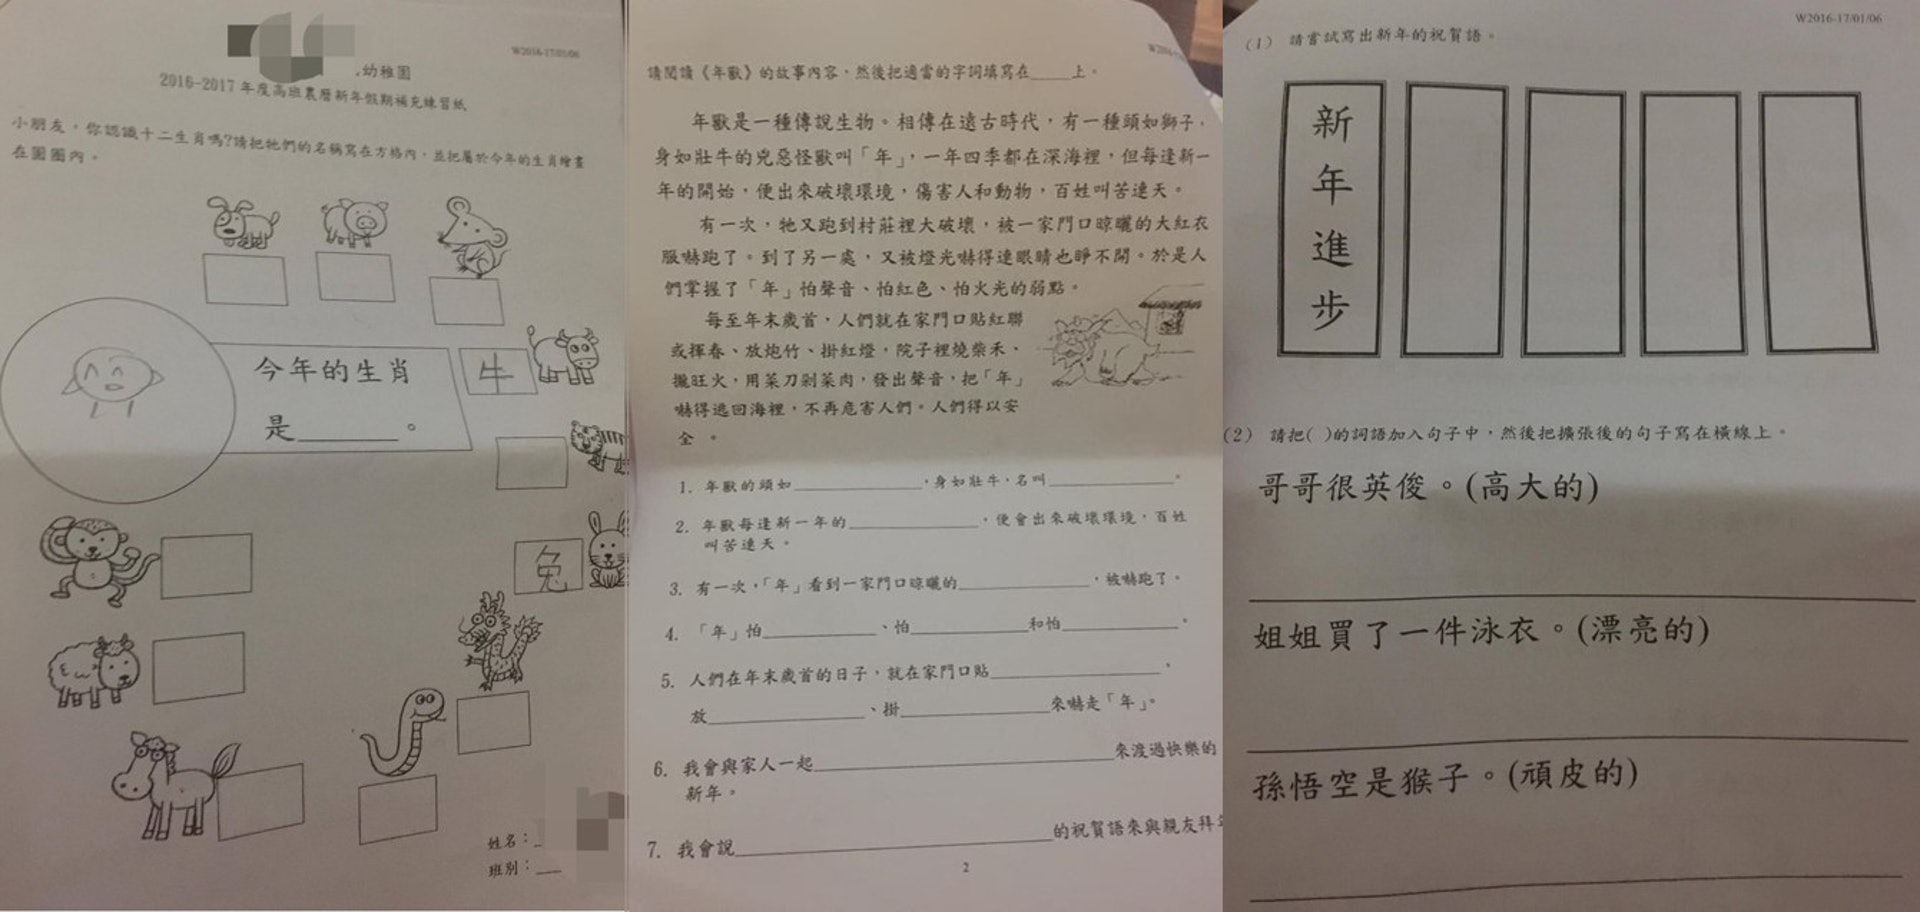 W2016-17/01/06
幼稚園
2016-2017年度高班農曆新年假期補充練習紙
小朋友，你認識十二生肖嗎?請把牠們的名稱寫在方格內，並把屬於今年的生肖繪畫
在圓圈內。
今年的生肖
是______。
牛
兔
姓名：
班別：
請閱讀《年獸》的故事內容，然後把適當的字詞填寫在____上。
年獸是一種傳說生物。相傳在遠古時代，有一種頭如獅子，
身如壯牛的兇惡怪獸叫「年」，一年四季都在深海裡，但每逢新一
年的開始，便出來破壞環境，傷害人和動物，百姓叫苦連天。
有一次，牠又跑到村莊裡大破壞，被一家門口晾曬的大紅衣
服嚇跑了。到了另一處，又被燈光嚇得連眼睛也睜不開。於是人
們掌握了「年」怕聲音、怕紅色、怕火光的弱點。
每至年末歲首，人們就在家門口貼紅聯
或揮春、放炮竹、掛紅燈，院子裡燒柴禾、
攏旺火，用菜刀剁菜肉，發出聲音，把「年」
嚇得逃回海裡，不再危害人們。人們得以安
全。
1. 年獸的頭如____________，身如壯牛，名叫____________。
2. 年獸每逢新一年的____________，便會出來破壞環境，百姓
叫苦連天。
3. 有一次，「年」看到一家門口晾曬的____________，被嚇跑了。
4. 「年」怕__________、怕__________和怕__________。
5. 人們在年末歲首的日子，就在家門口貼______________、
放______________、掛______________來嚇走「年」。
6. 我會與家人一起____________________來渡過快樂的
新年。
7. 我會說____________________的祝賀語來與親友拜
2
W2016-17/01/06
(1) 請嘗試寫出新年的祝賀語。
新年進步
(2) 請把( )的詞語加入句子中，然後把擴張後的句子寫在橫線上。
哥哥很英俊。(高大的)
姐姐買了一件泳衣。(漂亮的)
孫悟空是猴子。(頑皮的)